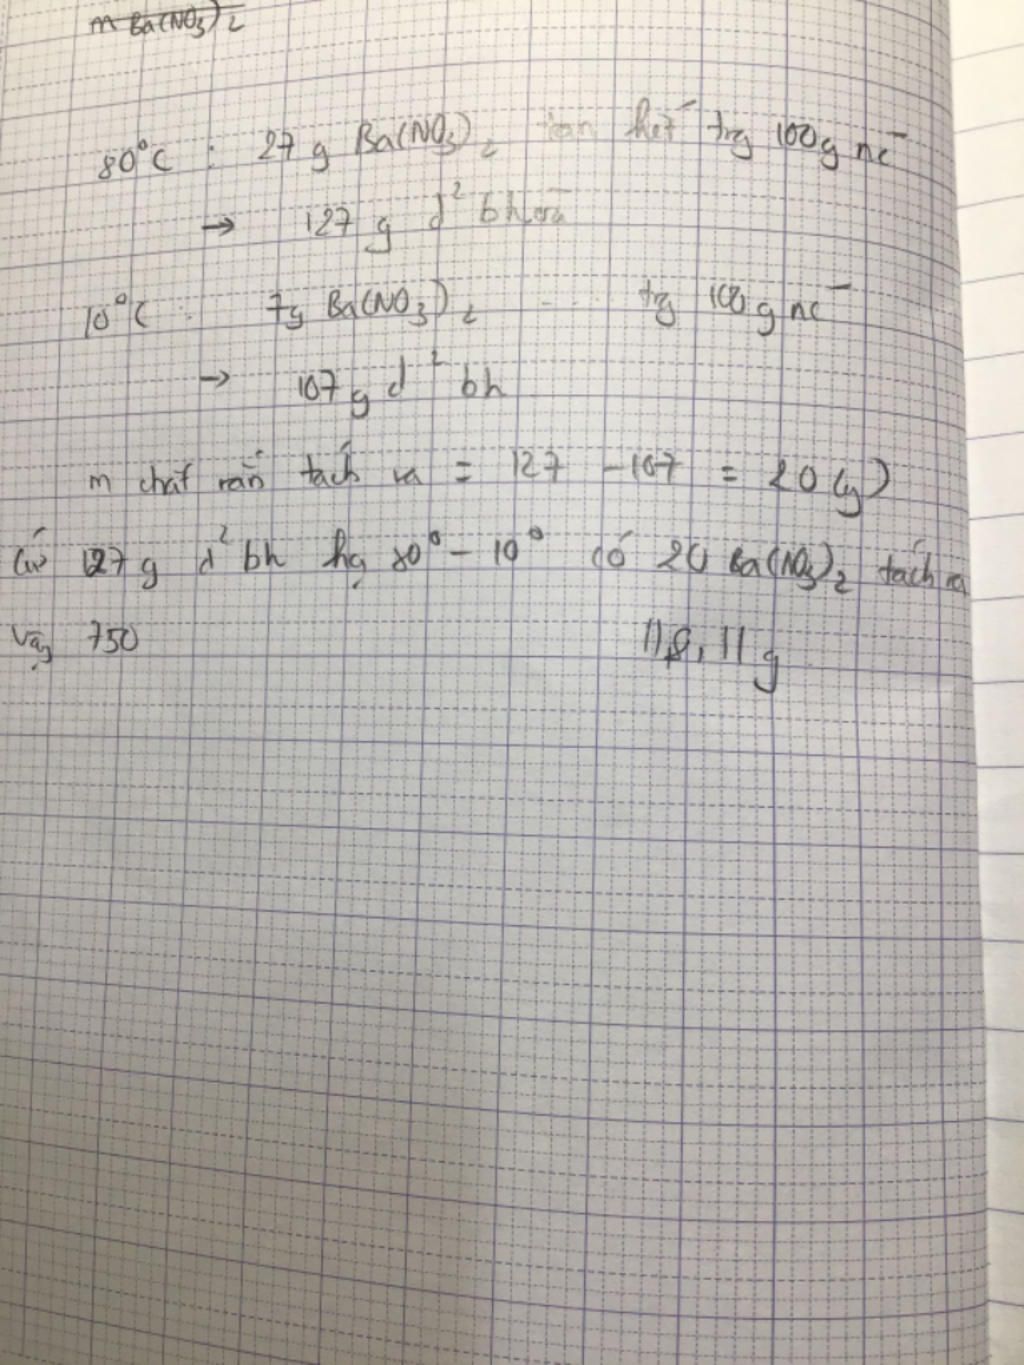 m Ba(NO₃)₂
80°C : 27 g Ba(NO₃)₂ tan hết trg 100g nc
→ 127 g d² bhoà
10°C : 7g Ba(NO₃)₂ ... trg 100g nc
→ 107 g d² bh
m chất rắn tách ra = 127 - 107 = 20 (g)
Cứ 127 g d² bh hạ 80° - 10° có 20 Ba(NO₃)₂ tách ra
Vậy 750 118,11 g